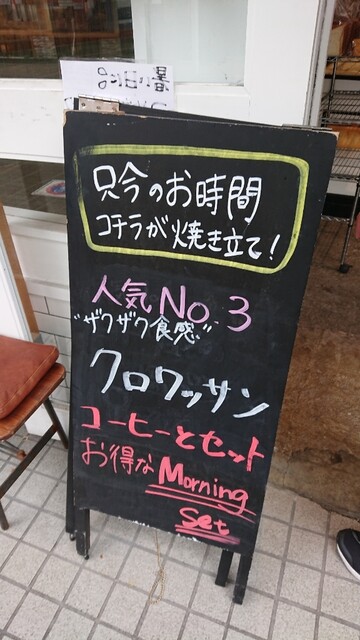 只今のお時間
コチラが焼き立て!
人気No.3
"ザクザク食感"
クロワッサン
コーヒーとセット
お得な Morning
Set